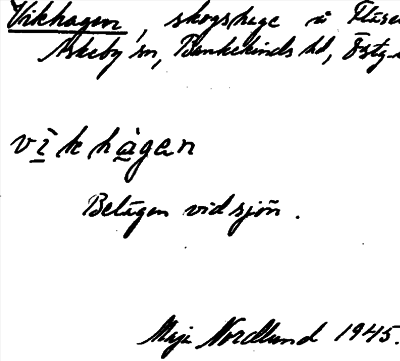 Vikhagen, skogshage i
Askeby sn, Bankekinds hd, Östg.
vìkhàgen
Belägen vid sjön.
Maja Nordlund 1945.